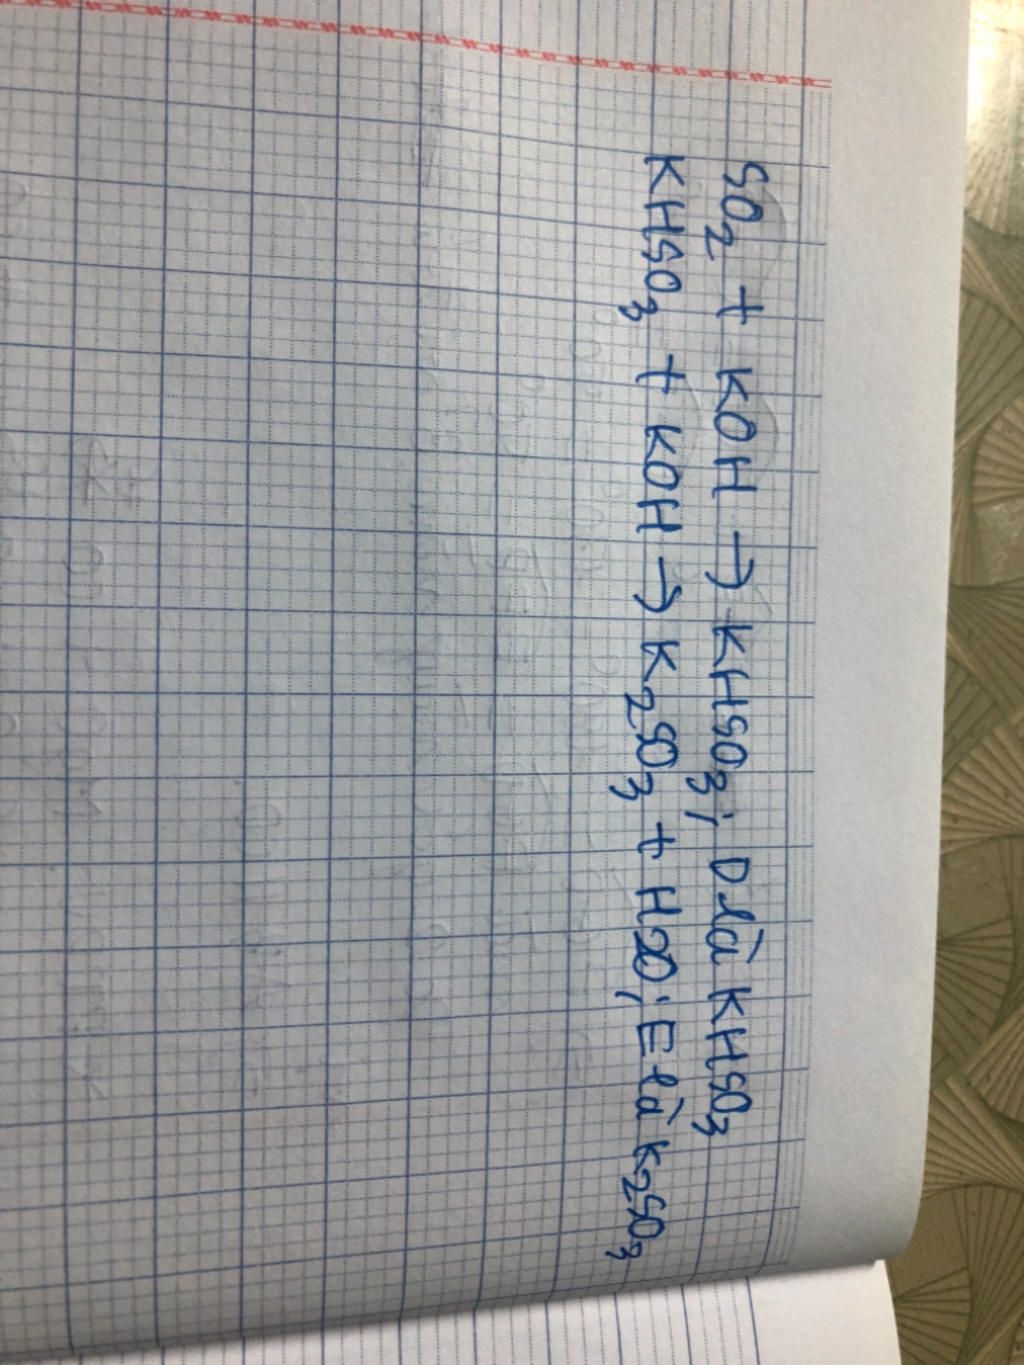 SO₂ + KOH → KHSO₃; D là KHSO₃
KHSO₃ + KOH → K₂SO₃ + H2O; E là K₂SO₃